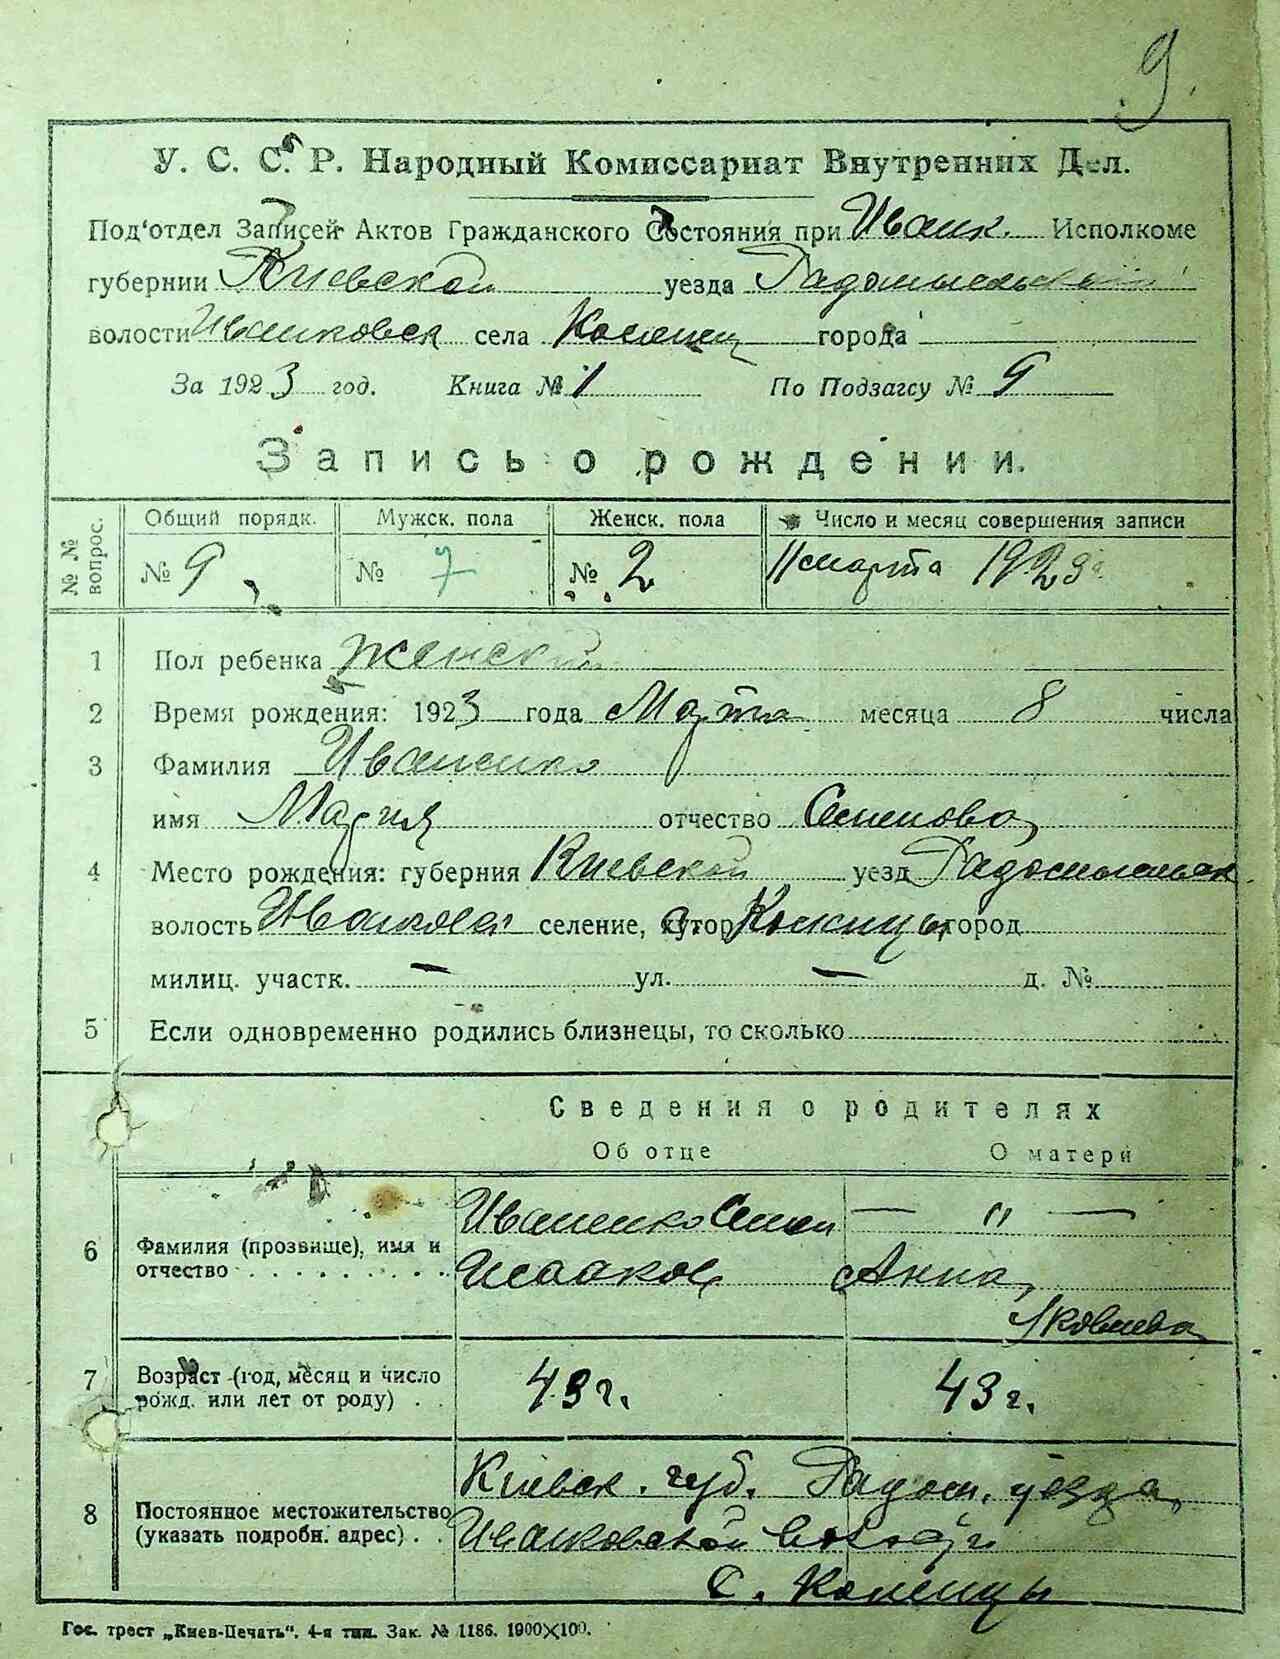 9.
У. С. С. Р. Народный Комиссариат Внутренних Дел.
Под'отдел Записей Актов Гражданского Состояния при Иванк. Исполкоме
губернии Киевской уезда Радомысльский
волости Иванковск села города
За 1923 год. Книга № 1 По Подзагсу № 9
Запись о рождении.
№ № вопрос.
Общий порядк. Мужск. пола Женск. пола Число и месяц совершения записи
№ 9 № 7 № 2 11 марта 1923 г.
1 Пол ребенка женский
2 Время рождения: 1923 года Марта месяца 8 числа
3 Фамилия Иваненко
имя Мария отчество Семенова
4 Место рождения: губерния Киевской уезд Радомысльск
волость селение, хутор город
милиц. участк. — ул. — д. №
5 Если одновременно родились близнецы, то сколько
Сведения о родителях
Об отце О матери
6 Фамилия (прозвище), имя и отчество
Иваненко Семен — " —
Исааков Анна
Яковлева
7 Возраст (год, месяц и число рожд. или лет от роду) . .
43 г. 43 г.
8 Постоянное местожительство (указать подробн. адрес) . .
Киевск. губ. Радом. уезда
Иванковской волости
с.
Гос. трест „Киев-Печать". 4-я тип. Зак. № 1186. 1000×100.